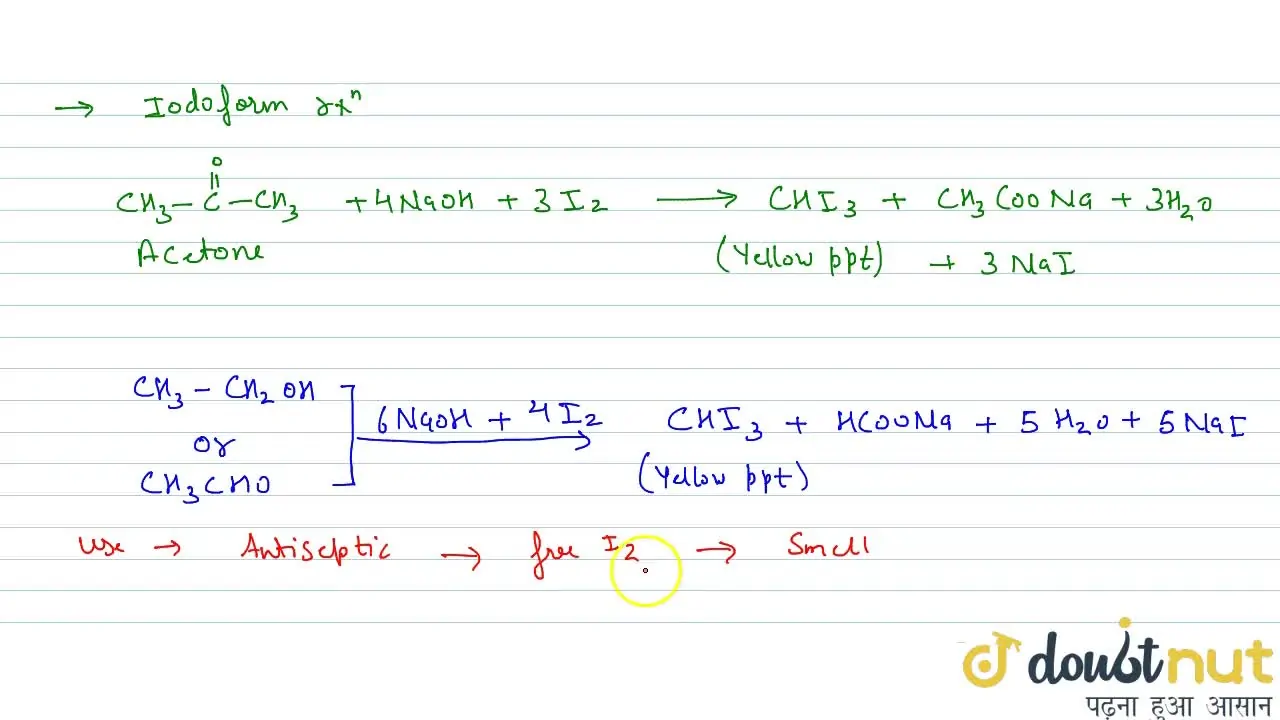 → Iodoform rxⁿ
O
||
CH₃ – C – CH₃ + 4 NaOH + 3 I₂ ⟶ CHI₃ + CH₃COONa + 3H₂O
Acetone (Yellow ppt) + 3 NaI
CH₃ – CH₂OH
6 NaOH + 4 I₂ CHI₃ + HCOONa + 5 H₂O + 5 NaI
or
CH₃CHO (Yellow ppt)
Use → Antiseptic → free I₂ → Smell
doubtnut
पढ़ना हुआ आसान